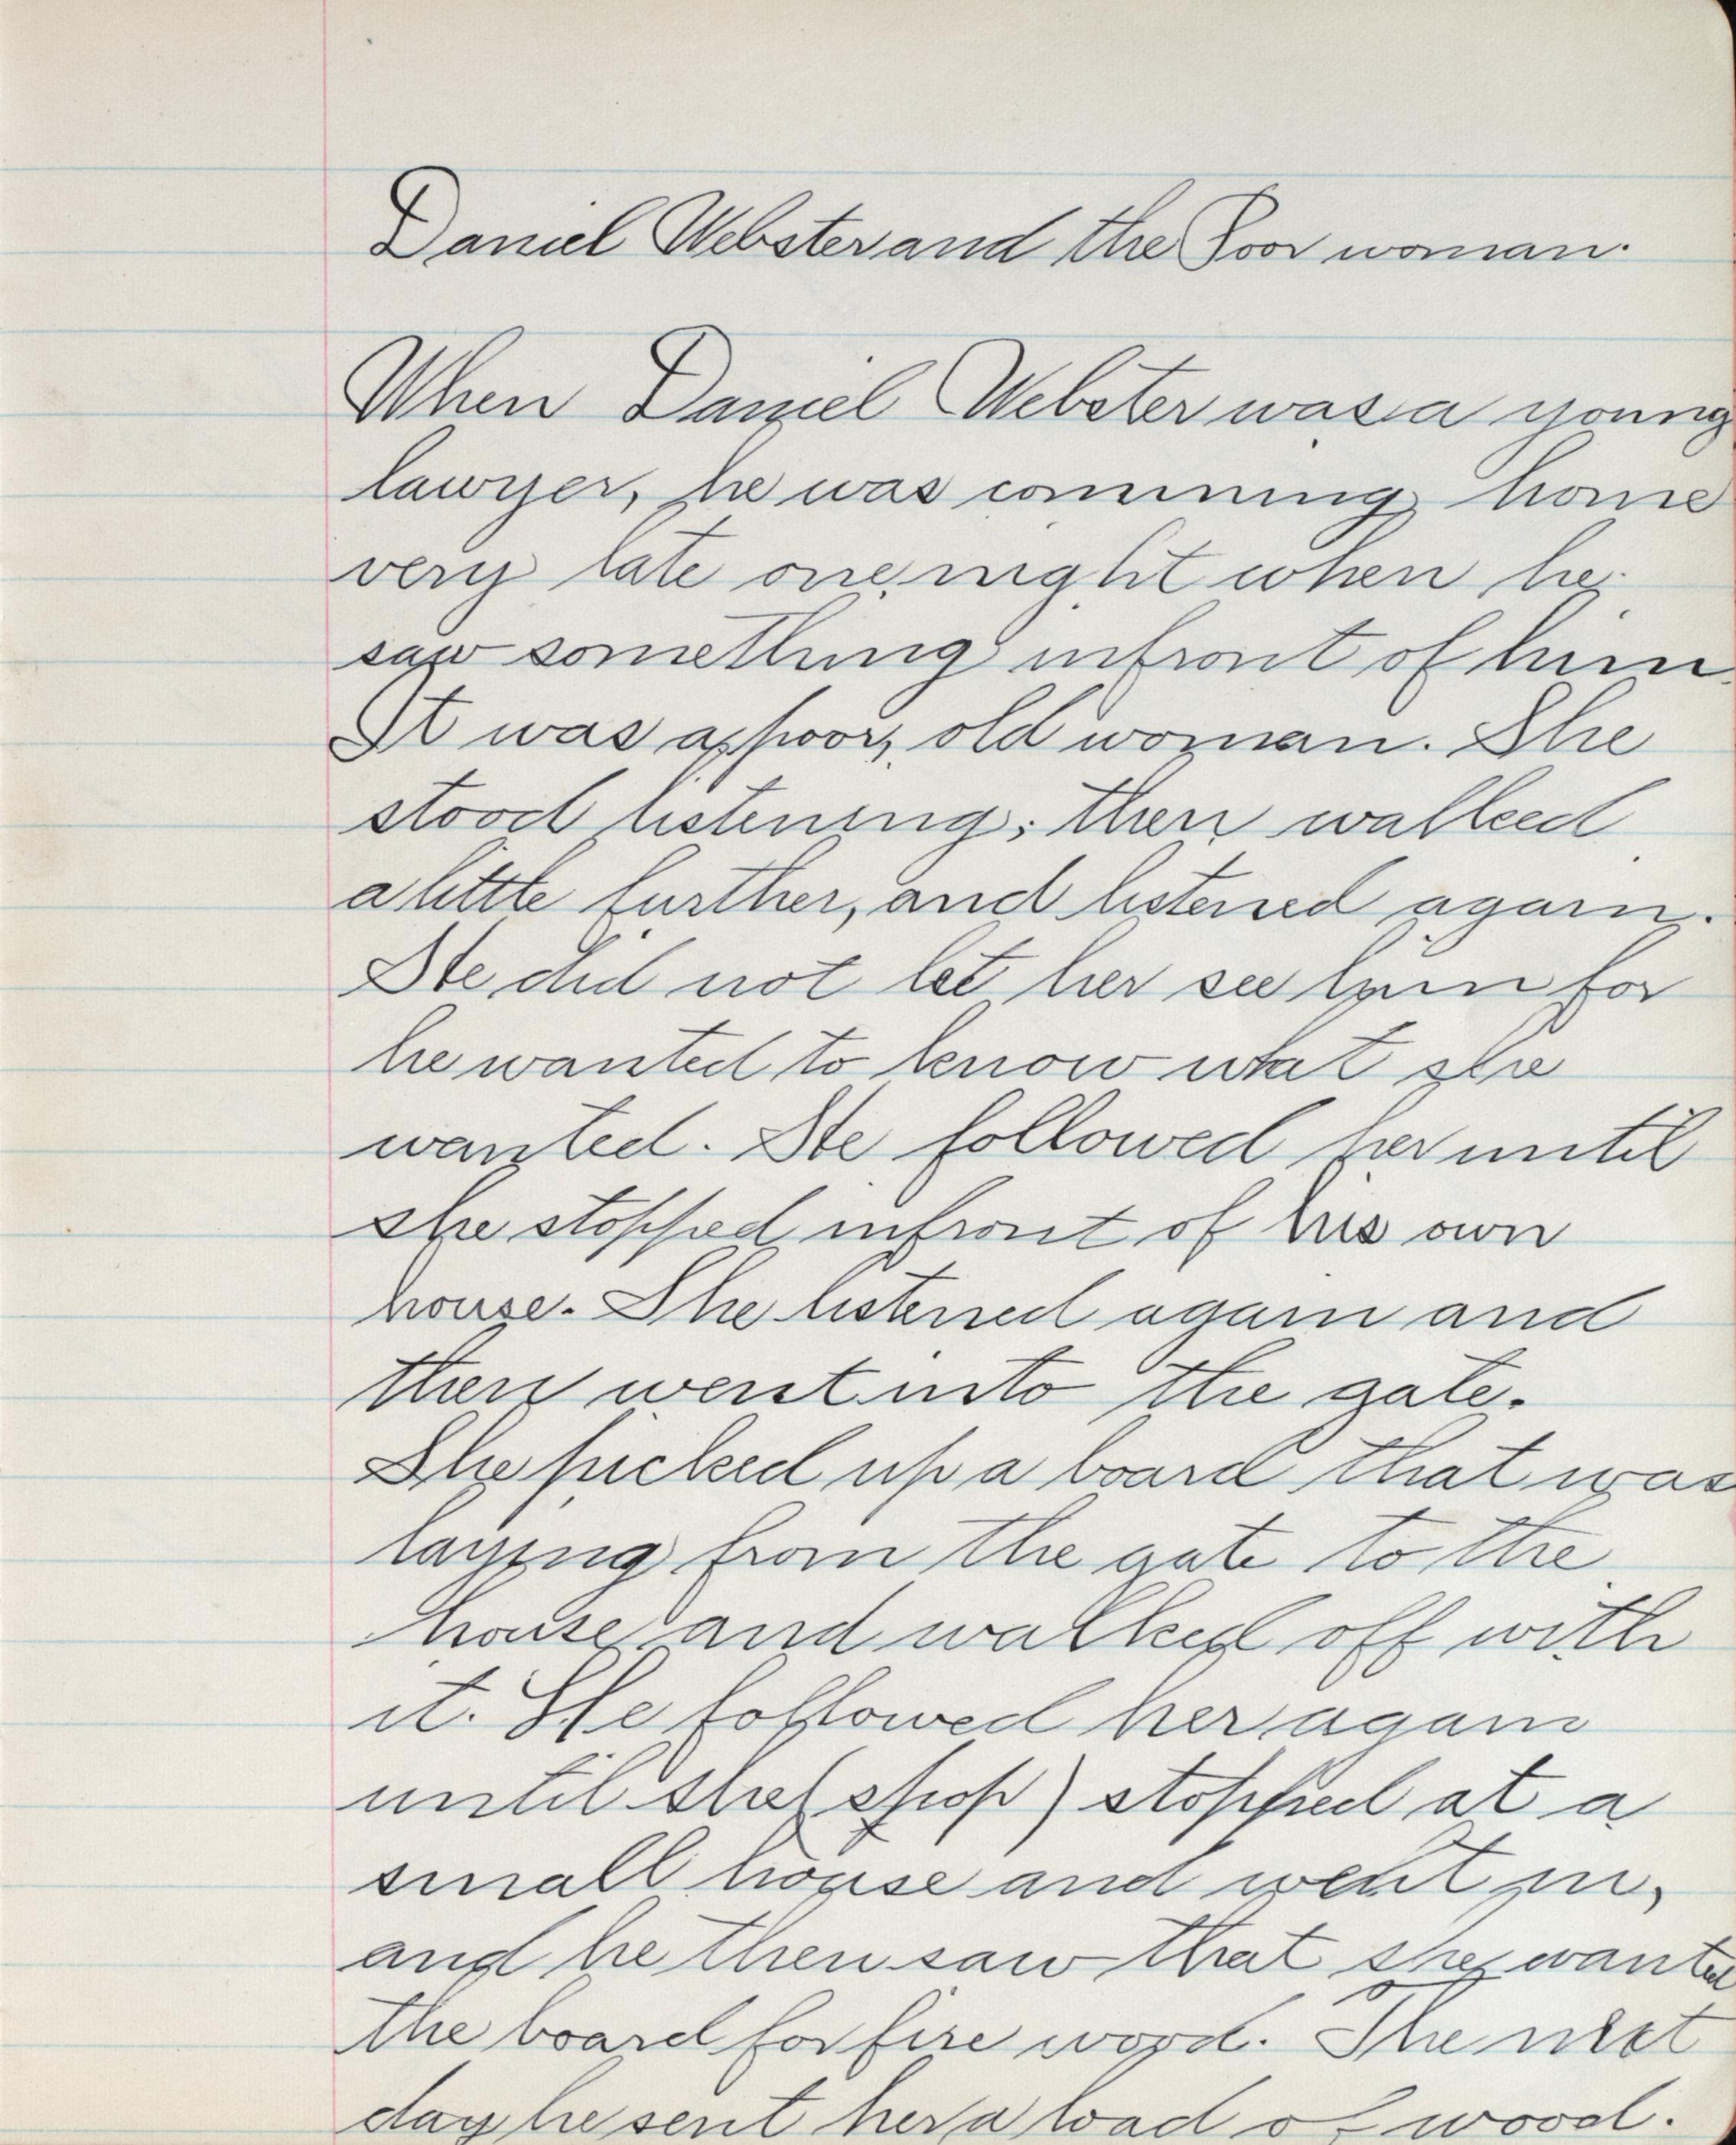 Daniel Webster and the Poor woman.
When Daniel Webster was a young
lawyer, he was comming home
very late one night when he
saw something infront of him.
It was a poor, old woman. She
stood listening; then walked
a little further, and listened again.
He did not let her see him for
he wanted to know what she
wanted. He followed her until
she stopped infront of his own
house. She listened again and
then went into the gate.
She picked up a board that was
laying from the gate to the
house and walked off with
it. He followed her again
until she (shop) stopped at a
small house and went in,
and he then saw that she wanted
the board for fire wood. The next
day he sent her a load of wood.